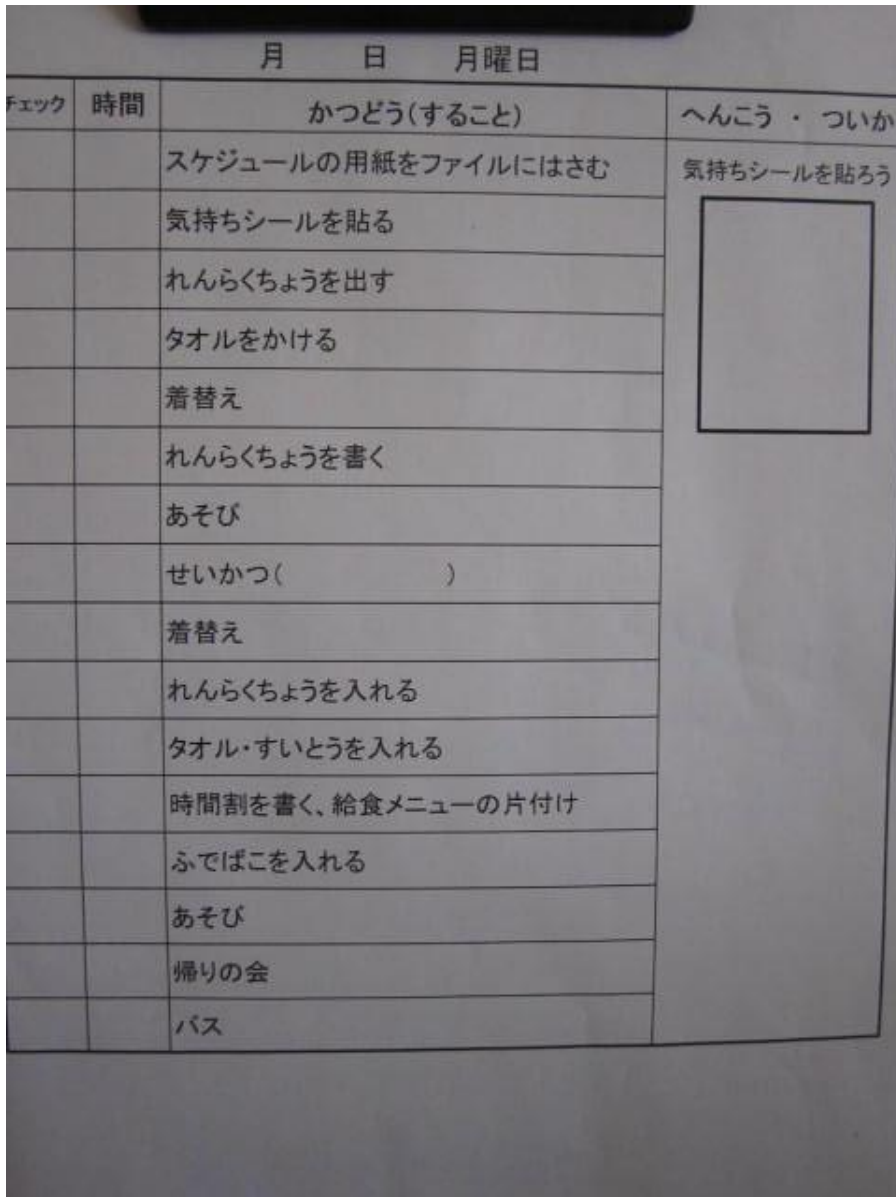 月 日 月曜日
チェック 時間 かつどう(すること) へんこう ・ ついか
スケジュールの用紙をファイルにはさむ
気持ちシールを貼ろう
気持ちシールを貼る
れんらくちょうを出す
タオルをかける
着替え
れんらくちょうを書く
あそび
せいかつ( )
着替え
れんらくちょうを入れる
タオル・すいとうを入れる
時間割を書く、給食メニューの片付け
ふでばこを入れる
あそび
帰りの会
バス